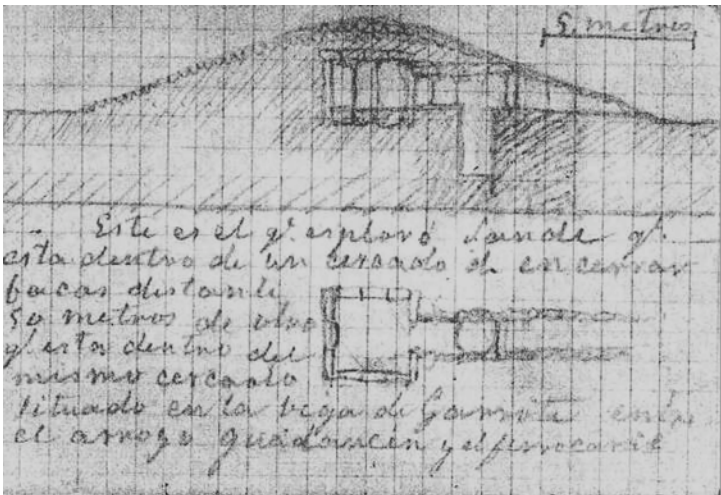 5 metros
Este es el q.e esploró Sande q.e
esta dentro de un cercado de encerrar
bacas distante
50 metros de otro
q.e esta dentro del
mismo cercado
situado en la vega de Garrota entre
el arroyo Guadancen y el ferrocaril